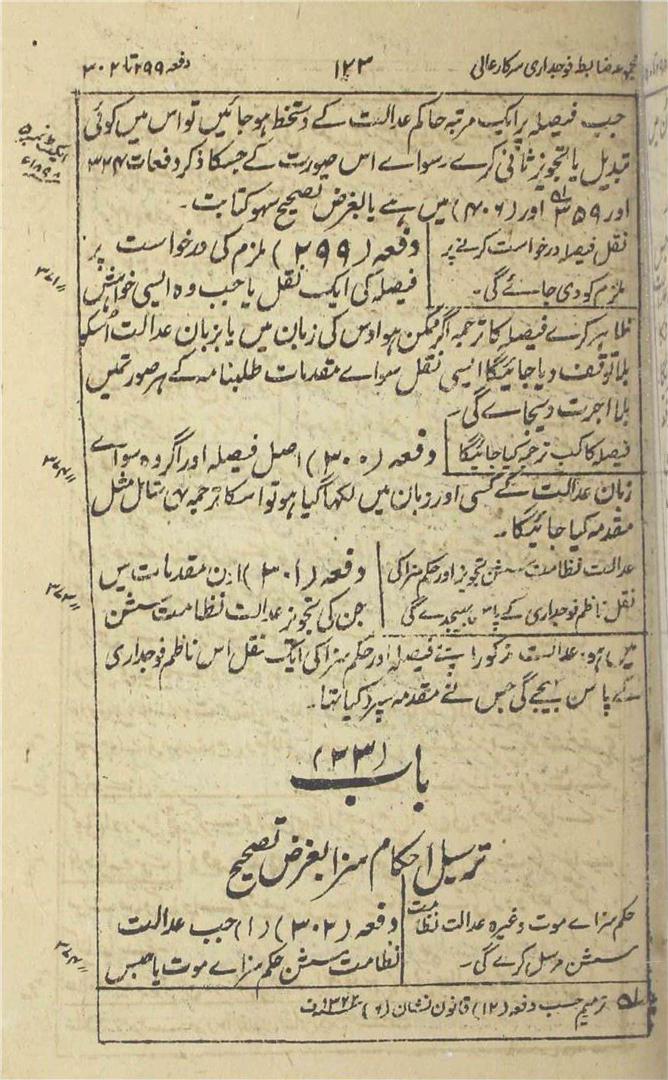 مجموعہ ضابطہ فوجداری سرکار عالی
۱۲۳
دفعہ ۲۹۹ تا ۳۰۲
جب فیصلہ پر ایک مرتبہ حاکم عدالت کے دستخط ہو جائیں تو اس میں کوئی
تبدیل یا تجویز ثانی نکرے۔ سواے اس صورت کے جسکا ذکر دفعات ۳۲۴
اور ۳۵۹ اور (۴۰۶) میں ہے یا بغرض تصحیح سہو کتابت۔
ایکٹ نمبر ۵
۱۸۹۸ء
نقل فیصلہ درخواست کرنے پر
ملزم کو دی جائے گی۔
دفعہ (۲۹۹) ملزم کی درخواست پر
فیصلہ کی ایک نقل یا جب وہ ایسی خواہش
۳۷۱ ״
ظاہر کرے فیصلہ کا ترجمہ اگر ممکن ہو اوس کی زبان میں یا بزبان عدالت اُسکو
بلا توقف دیا جائیگا ایسی نقل سواے مقدمات طلبنامہ کے ہر صورتمیں
بلا اجرت دیجاے گی۔
فیصلہ کا کب ترجمہ کیا جائیگا
دفعہ (۳۰۰) اصل فیصلہ اور اگر وہ سواے
زبان عدالت کے کسی اور زبان میں لکھا گیا ہو تو اسکا ترجمہ بھی شامل مثل
مقدمہ کیا جائیگا۔
عدالت نظامت سشن تجویز اور حکم سزا کی
نقل ناظم فوجداری کے پاس بھیجدے گی
دفعہ (۳۰۱) ان مقدمات میں
جن کی تجویز عدالت نظامت سشن
۳۷۳ ״
میں ہو۔ عدالت مذکور اپنے فیصلہ اور حکم سزا کی ایک نقل اس ناظم فوجداری
کے پاس بھیجے گی جس نے مقدمہ سپرد کیا تھا۔
باب (۲۳)
ترسیل احکام سزا بغرض تصحیح
حکم سزاے موت وغیرہ عدالت نظامت
سشن مرسل کرے گی۔
دفعہ (۳۰۲) (۱) جب عدالت
نظامت سشن حکم سزاے موت یا حبس
۳۷۴ ״
ترمیم حسب دفعہ (۱۲) قانون نشان (۶)